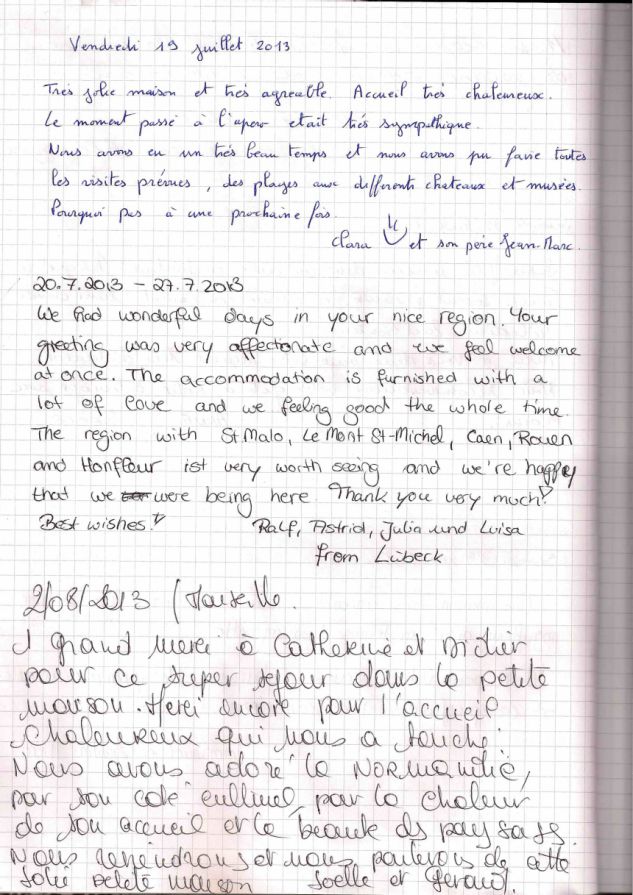 Vendredi 19 juillet 2013
Très jolie maison et très agréable. Accueil très chaleureux.
Le moment passé à l'apero etait très sympathique.
Nous avons eu un très beau temps et nous avons pu faire toutes
les visites prévues, des plages aux differents chateaux et musées.
Pourquoi pas à une prochaine fois.
Clara et son père Jean-Marc.
20.7.2013 - 27.7.2013
We had wonderful days in your nice region. Your
greeting was very affectonate and we feel welcome
at once. The accommodation is furnished with a
lot of love and we feeling good the whole time.
The region with St Malo, Le Mont St-Michel, Caen, Rouen
and Honfleur ist very worth seeing and we're happy
that we were being here. Thank you very much!
Best wishes!
Ralf, Astrid, Julia und Luisa
from Lübeck
2/08/2013 (Marseille.
1 grand merci à Catherine et Didier
pour ce super sejour dans la petite
maison. Merci encore pour l'accueil
chaleureux qui nous a touché.
Nous avons adoré la Normandie,
par son coté cullinel, par la chaleur
de son accueil et la beauté des paysages.
Nous reviendrons et nous parlerons de cette
jolie petite maison Joelle et Gerard.